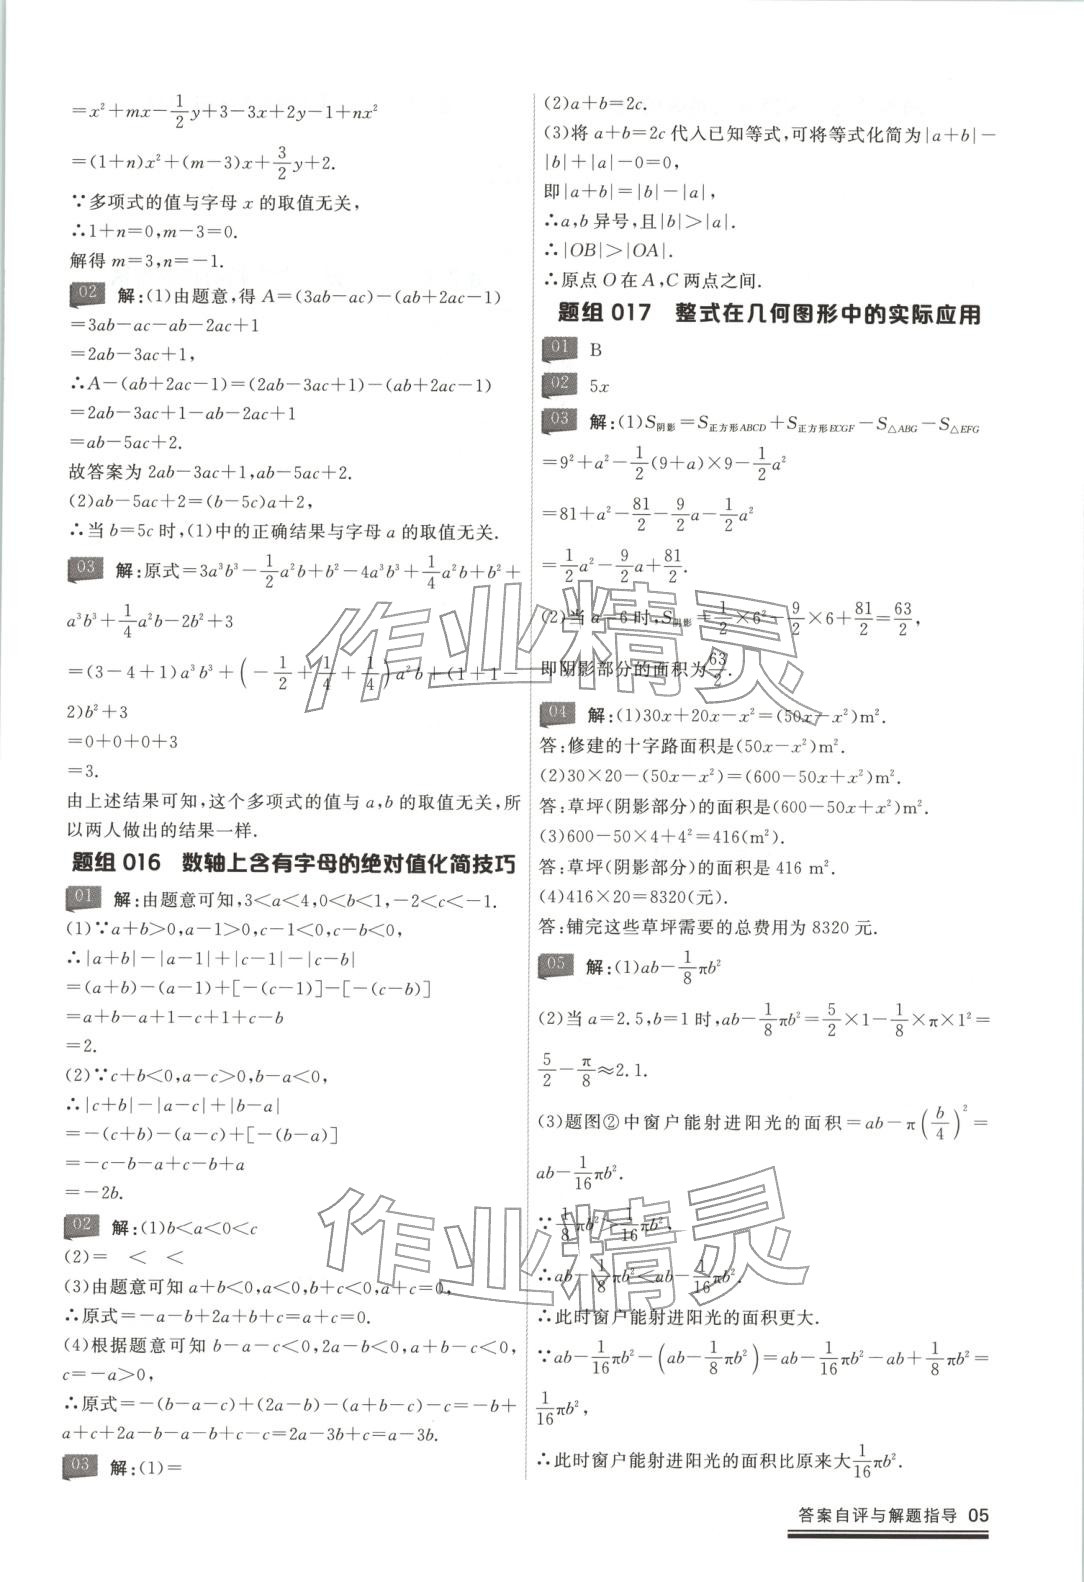 =x²+mx-\frac{1}{2}y+3-3x+2y-1+nx²
=(1+n)x²+(m-3)x+\frac{3}{2}y+2.
∵多项式的值与字母 x 的取值无关,
∴1+n=0,m-3=0.
解得 m=3,n=-1.
02 解:(1)由题意,得 A=(3ab-ac)-(ab+2ac-1)
=3ab-ac-ab-2ac+1
=2ab-3ac+1,
∴A-(ab+2ac-1)=(2ab-3ac+1)-(ab+2ac-1)
=2ab-3ac+1-ab-2ac+1
=ab-5ac+2.
故答案为 2ab-3ac+1,ab-5ac+2.
(2)ab-5ac+2=(b-5c)a+2,
∴当 b=5c 时,(1)中的正确结果与字母 a 的取值无关.
03 解:原式=3a³b³-\frac{1}{2}a²b+b²-4a³b³+\frac{1}{4}a²b+b²+
a³b³+\frac{1}{4}a²b-2b²+3
=(3-4+1)a³b³+(-\frac{1}{2}+\frac{1}{4}+\frac{1}{4})a²b+(1+1-
2)b²+3
=0+0+0+3
=3.
由上述结果可知,这个多项式的值与 a,b 的取值无关,所
以两人做出的结果一样.
题组 016 数轴上含有字母的绝对值化简技巧
01 解:由题意可知,3<a<4,0<b<1,-2<c<-1.
(1)∵a+b>0,a-1>0,c-1<0,c-b<0,
∴|a+b|-|a-1|+|c-1|-|c-b|
=(a+b)-(a-1)+[-(c-1)]-[-(c-b)]
=a+b-a+1-c+1+c-b
=2.
(2)∵c+b<0,a-c>0,b-a<0,
∴|c+b|-|a-c|+|b-a|
=-(c+b)-(a-c)+[-(b-a)]
=-c-b-a+c-b+a
=-2b.
02 解:(1)b<a<0<c
(2)= < <
(3)由题意可知 a+b<0,a<0,b+c<0,a+c=0,
∴原式=-a-b+2a+b+c=a+c=0.
(4)根据题意可知 b-a-c<0,2a-b<0,a+b-c<0,
c=-a>0,
∴原式=-(b-a-c)+(2a-b)-(a+b-c)-c=-b+
a+c+2a-b-a-b+c-c=2a-3b+c=a-3b.
03 解:(1)=
(2)a+b=2c.
(3)将 a+b=2c 代入已知等式,可将等式化简为|a+b|-
|b|+|a|-0=0,
即|a+b|=|b|-|a|,
∴a,b 异号,且|b|>|a|.
∴|OB|>|OA|.
∴原点 O 在 A,C 两点之间.
题组 017 整式在几何图形中的实际应用
01 B
02 5x
03 解:(1)S阴影=S正方形ABCD+S正方形ECGF-S△ABG-S△EFG
=9²+a²-\frac{1}{2}(9+a)×9-\frac{1}{2}a²
=81+a²-\frac{81}{2}-\frac{9}{2}a-\frac{1}{2}a²
=\frac{1}{2}a²-\frac{9}{2}a+\frac{81}{2}.
(2)当 a=6 时,S阴影=\frac{1}{2}×6²-\frac{9}{2}×6+\frac{81}{2}=\frac{63}{2},
即阴影部分的面积为\frac{63}{2}.
04 解:(1)30x+20x-x²=(50x-x²)m².
答:修建的十字路面积是(50x-x²)m².
(2)30×20-(50x-x²)=(600-50x+x²)m².
答:草坪(阴影部分)的面积是(600-50x+x²)m².
(3)600-50×4+4²=416(m²).
答:草坪(阴影部分)的面积是 416 m².
(4)416×20=8320(元).
答:铺完这些草坪需要的总费用为 8320 元.
05 解:(1)ab-\frac{1}{8}πb²
(2)当 a=2.5,b=1 时,ab-\frac{1}{8}πb²=\frac{5}{2}×1-\frac{1}{8}×π×1²=
\frac{5}{2}-\frac{π}{8}≈2.1.
(3)题图②中窗户能射进阳光的面积=ab-π(\frac{b}{4})²=
ab-\frac{1}{16}πb².
∵\frac{1}{8}πb²>\frac{1}{16}πb²,
∴ab-\frac{1}{8}πb²<ab-\frac{1}{16}πb².
∴此时窗户能射进阳光的面积更大.
∵ab-\frac{1}{16}πb²-(ab-\frac{1}{8}πb²)=ab-\frac{1}{16}πb²-ab+\frac{1}{8}πb²=
\frac{1}{16}πb²,
∴此时窗户能射进阳光的面积比原来大\frac{1}{16}πb².
答案自评与解题指导 05
作业精灵
作业精灵